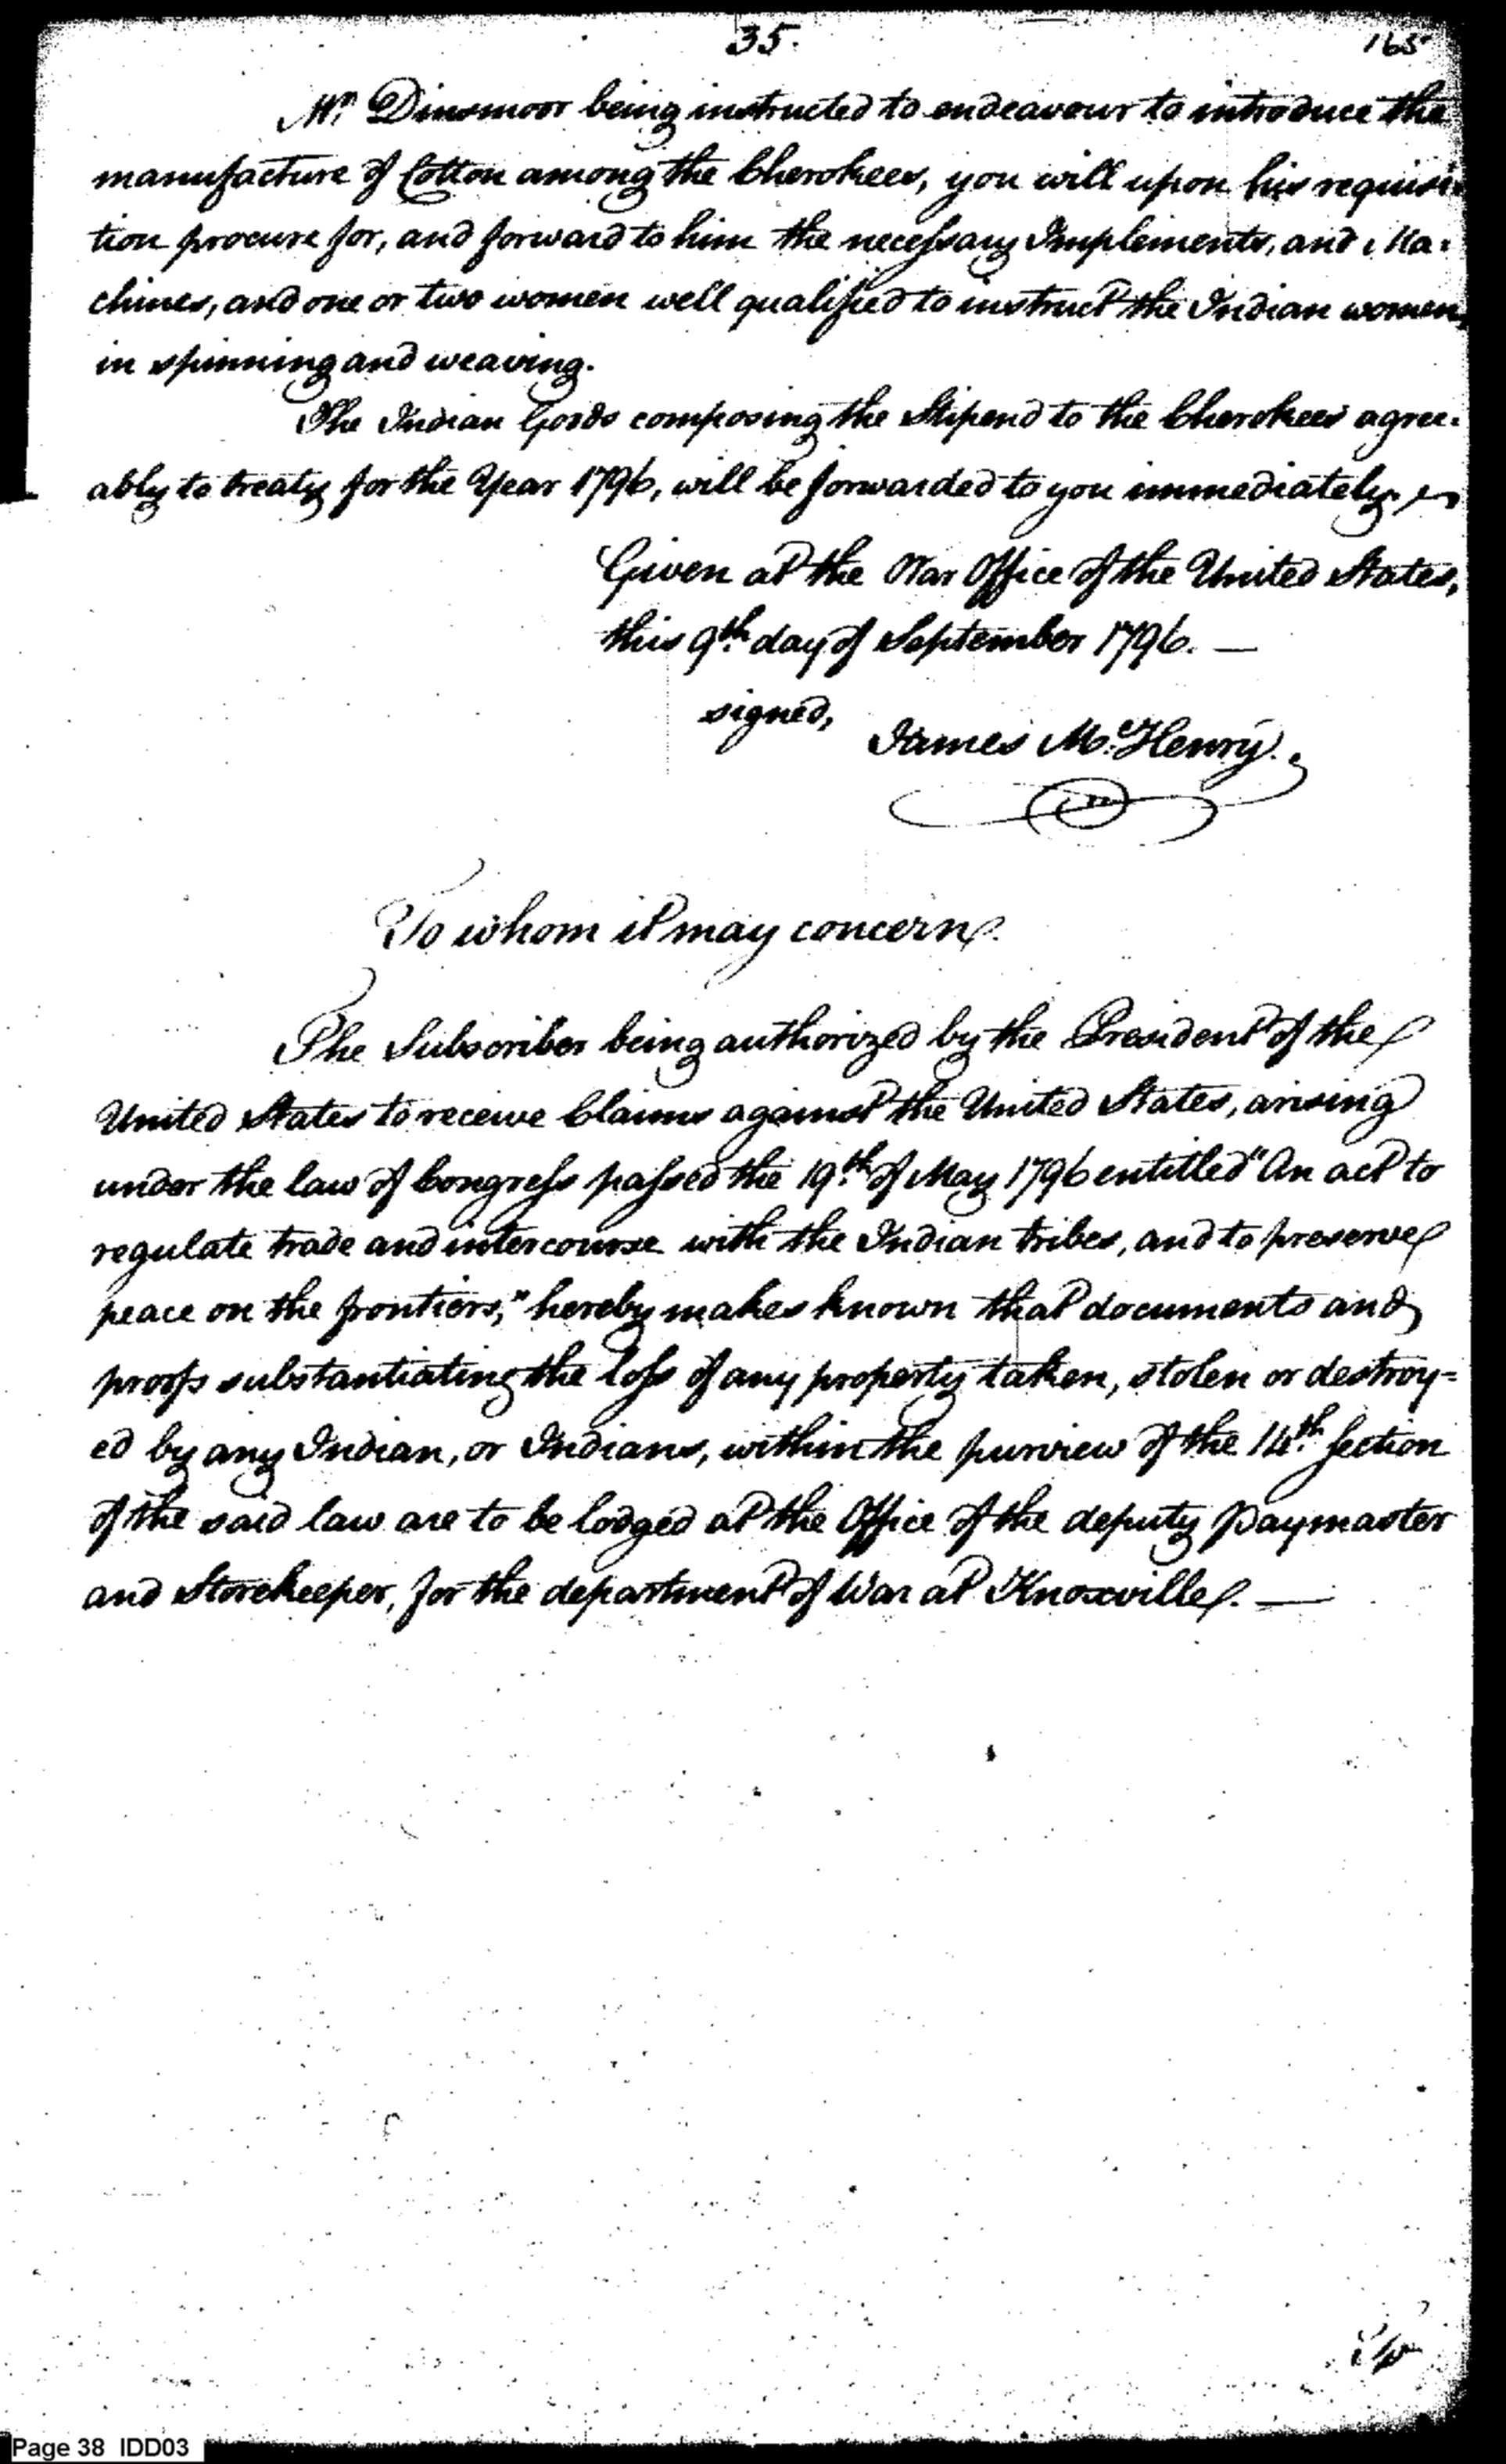 35.
165
Mr. Dinsmoor being instructed to endeavour to introduce the
manufacture of Cotton among the Cherokees, you will upon his requisi
tion procure for, and forward to him the necessary Implements, and Ma-
chines, and one or two women well qualified to instruct the Indian women
in spinning and weaving.
The Indian Goods composing the Stipend to the Cherokees agree-
ably to treaty for the Year 1796, will be forwarded to you immediately.
Given at the War Office of the United States,
this 9th. day of September 1796. —
signed,
James McHenry.
To whom it may concern.
The Subscriber being authorized by the President of the
United States to receive Claims against the United States, arising
under the law of Congress passed the 19th. of May 1796 entitled "An act to
regulate trade and intercourse with the Indian tribes, and to preserve
peace on the frontiers," hereby makes known that documents and
proofs substantiating the loss of any property taken, stolen or destroy=
ed by any Indian, or Indians, within the purview of the 14th. Section
of the said law are to be lodged at the Office of the deputy Paymaster
and Storekeeper, for the department of War at Knoxville. —
Page 38 IDD03